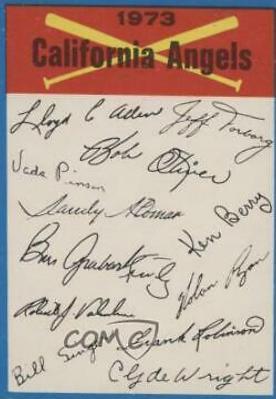 1973
California Angels
Lloyd C Allen Jeff Torborg
Bob Oliver
Vada Pinson
Sandy Alomar
Ken Berry
Nolan Ryan
Robert J. Valentine
Bill Singer Frank Robinson
Clyde Wright
COM